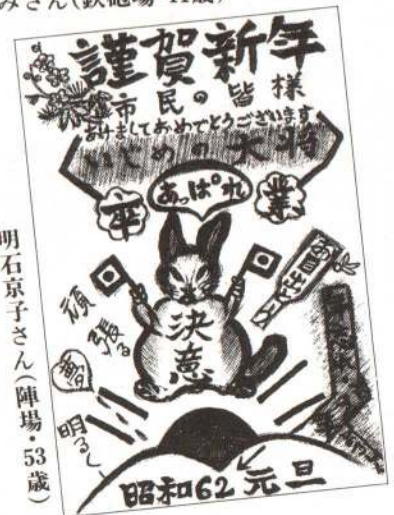 みさん(鉄砲場・41歳)
謹賀新年
市民の皆様
あけましておめでとうございます
いじめの大将
卒
あっぱれ
業
お目出とう
決意
頑張る
夢
明るく、
昭和62元旦
明石京子さん(陣場・53歳)